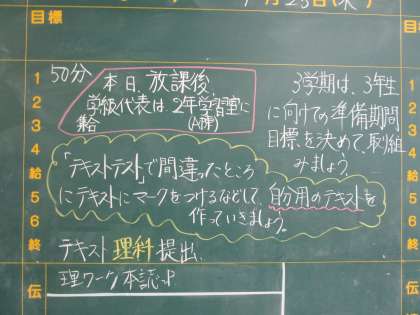 月23日(木)
目標
50分
本日、放課後、
学級代表は2年学習室に
(A棟)
集合
3学期は、3年生
に向けての準備期間
目標を決めて、取り組
みましょう。
1
2
3
4
給
5
6
終
伝
「テキストテスト」で間違ったところ
にテキストにマークをつけるなどして、自分用のテキストを
作っていきましょう。
テキスト理科提出
理ワーク本読ロ
1
2
3
4
給
5
6
終
伝